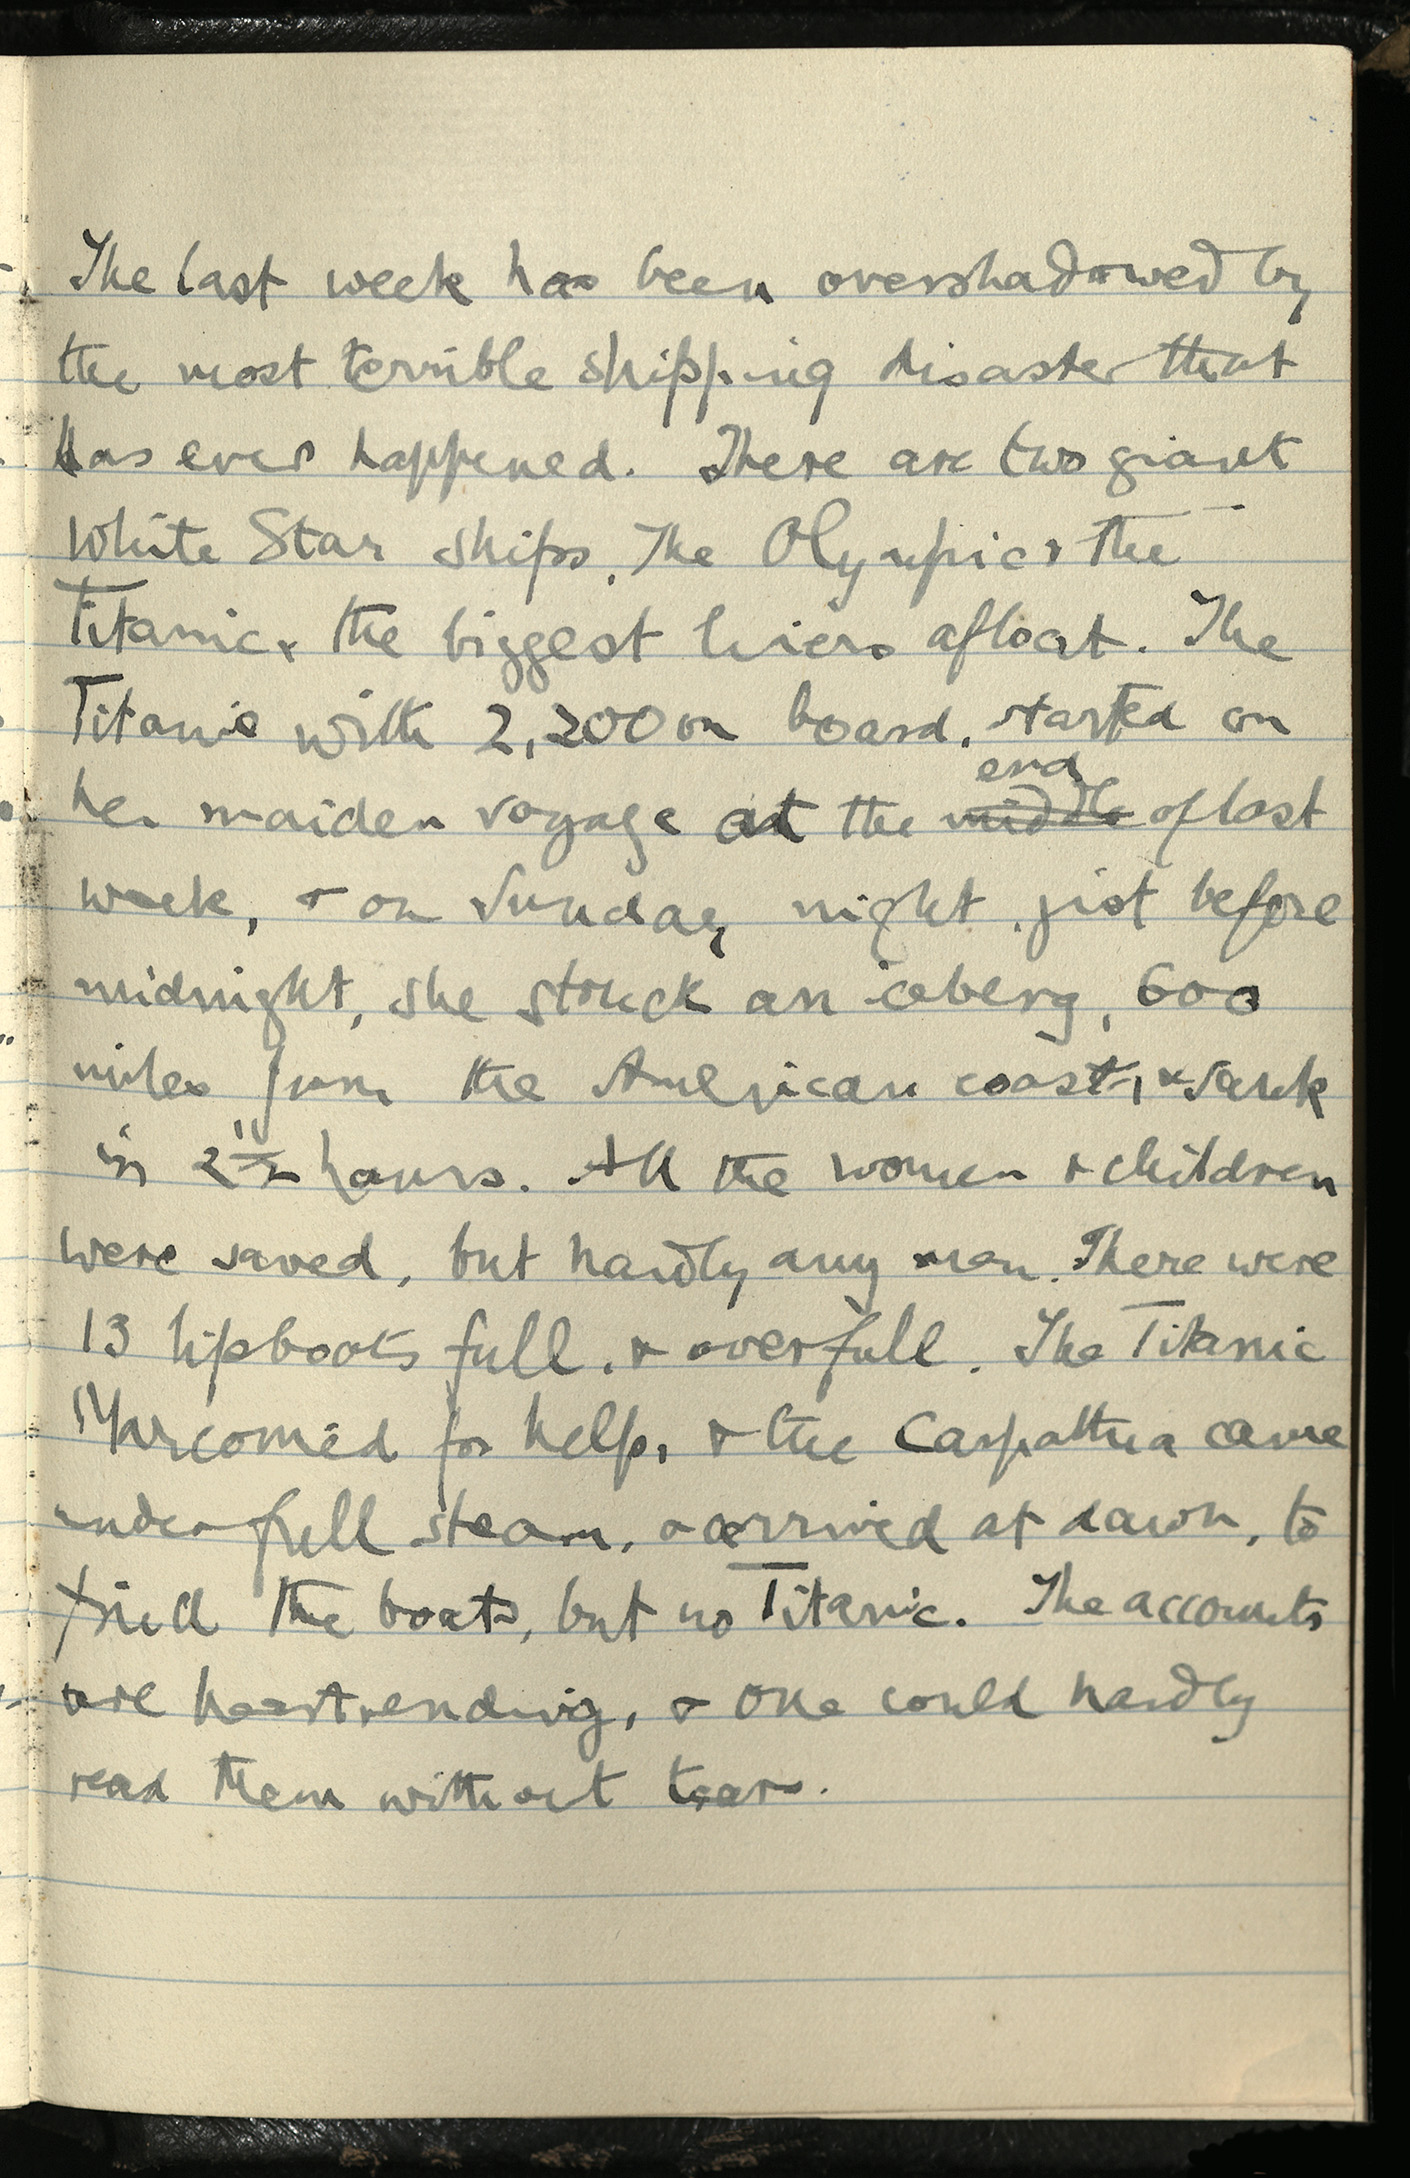 The last week has been overshadowed by
the most terrible shipping disaster that
has ever happened. There are two giant
White Star ships, The Olympic & the
Titanic, the biggest liners afloat. The
Titanic with 2,200 on board, started on
end
her maiden voyage at the middle of last
week, & on Sunday night, just before
midnight, she struck an iceberg, 600
miles from the American coast, & sank
in 2 1/2 hours. All the women & children
were saved, but hardly any men. There were
13 lifeboats full, & overfull. The Titanic
Marconied for help, & the Carpathia came
under full steam, & arrived at dawn, to
find the boats, but no Titanic. The accounts
are heartrending, & one could hardly
read them without tears.